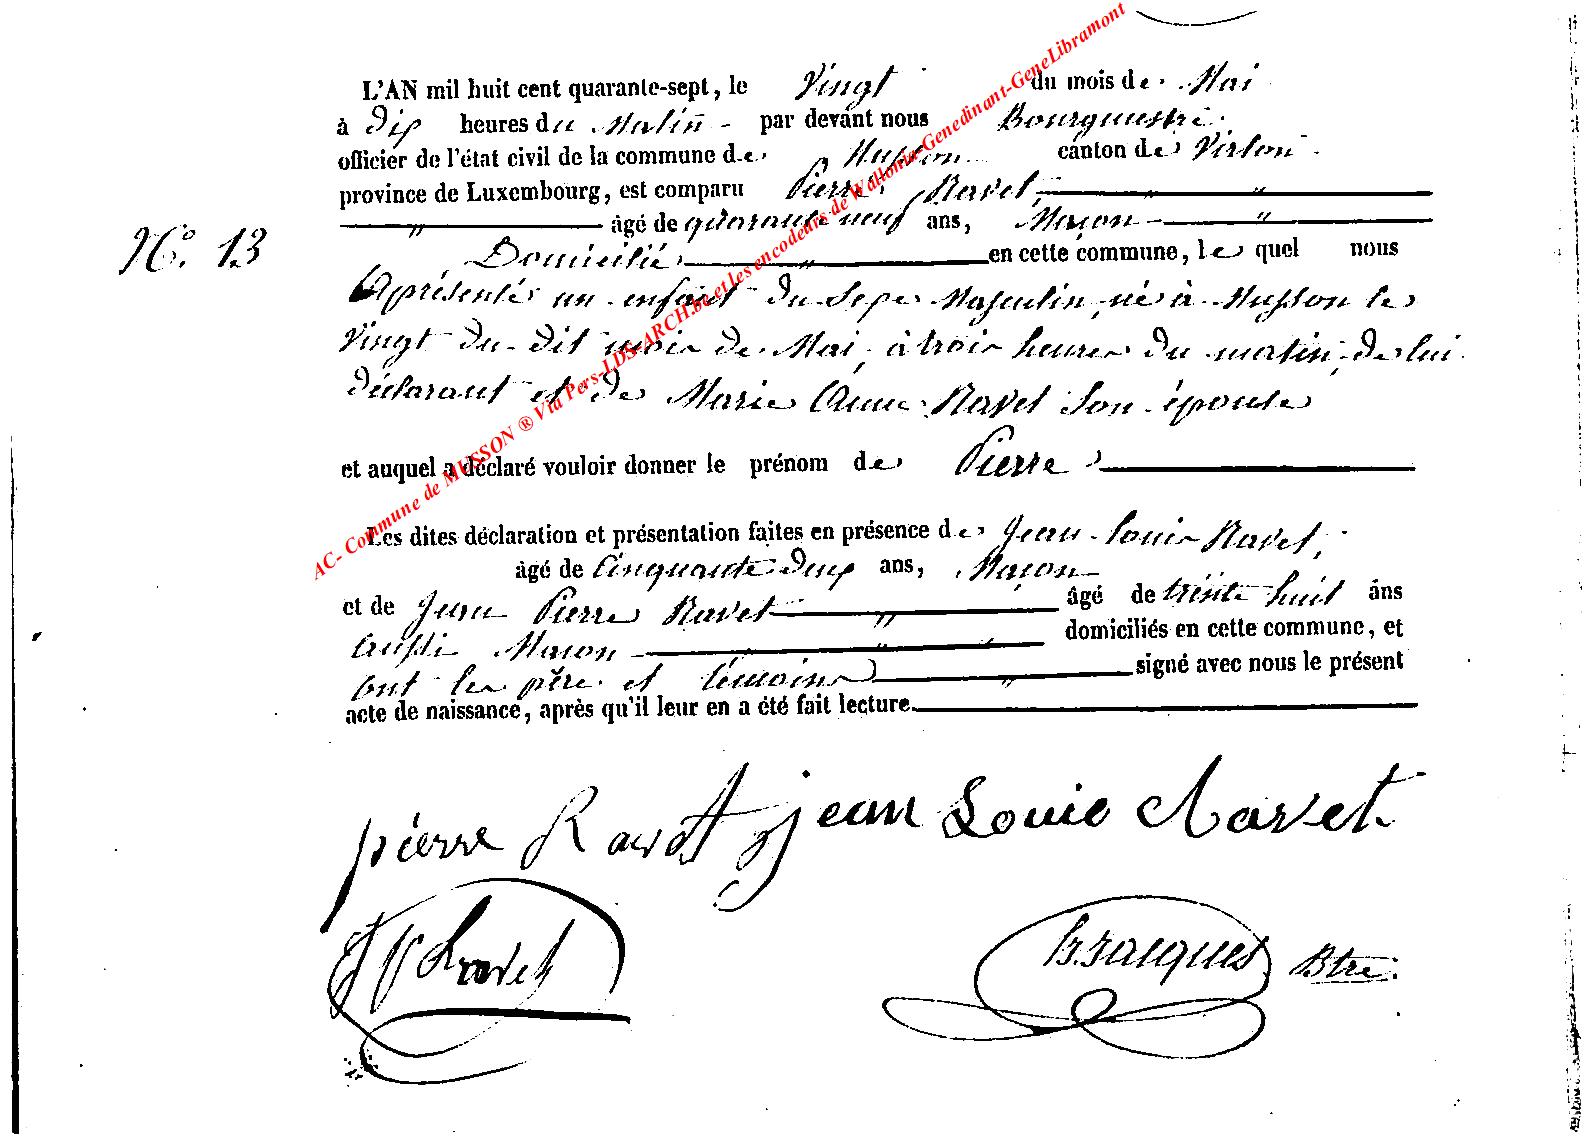 L'AN mil huit cent quarante-sept, le Vingt du mois de Mai
à Dix heures du Matin par devant nous Bourgmestre
officier de l'état civil de la commune de Musson canton de Virton
province de Luxembourg, est comparu Pierre Ravet,
âgé de quarante neuf ans, Maçon
N° 13
Domicilié en cette commune, le quel nous
a présenté un enfant du Sexe Masculin, né à Musson le
Vingt du dit mois de Mai, à trois heures du matin, de lui
déclarant et de Marie Anne Ravet Son épouse
et auquel a déclaré vouloir donner le prénom de Pierre
Les dites déclaration et présentation faites en présence de Jean Louis Ravet,
âgé de Cinquante Deux ans, Maçon
et de Jean Pierre Ravet âgé de trente huit ans
aussi Maçon domiciliés en cette commune, et
ont les père et témoins signé avec nous le présent
acte de naissance, après qu'il leur en a été fait lecture.
pierre Ravet jean Louis Ravet
JP Ravet Jacques Btre.
AC- Commune de MUSSON ® Via Pers-LDS-ARCH.be et les encodeurs de Wallonia-Genedinant-GeneLibramont